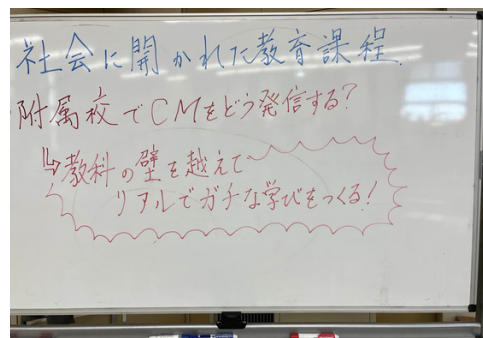 社会に開かれた教育課程
附属校でCMをどう発信する?
↳教科の壁を越えて
リアルでガチな学びをつくる!